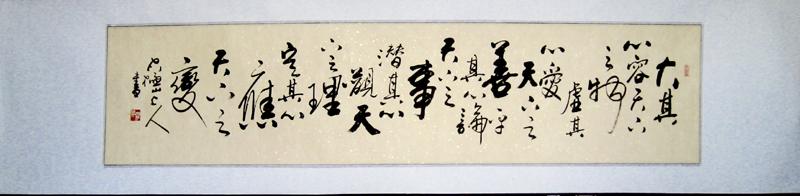 大其
心容天下
之物
虛其
心愛
天下之
善平
其心論
天下之
事
潛其心
觀天
下之理
定其心
應
天下之
變
上人
書